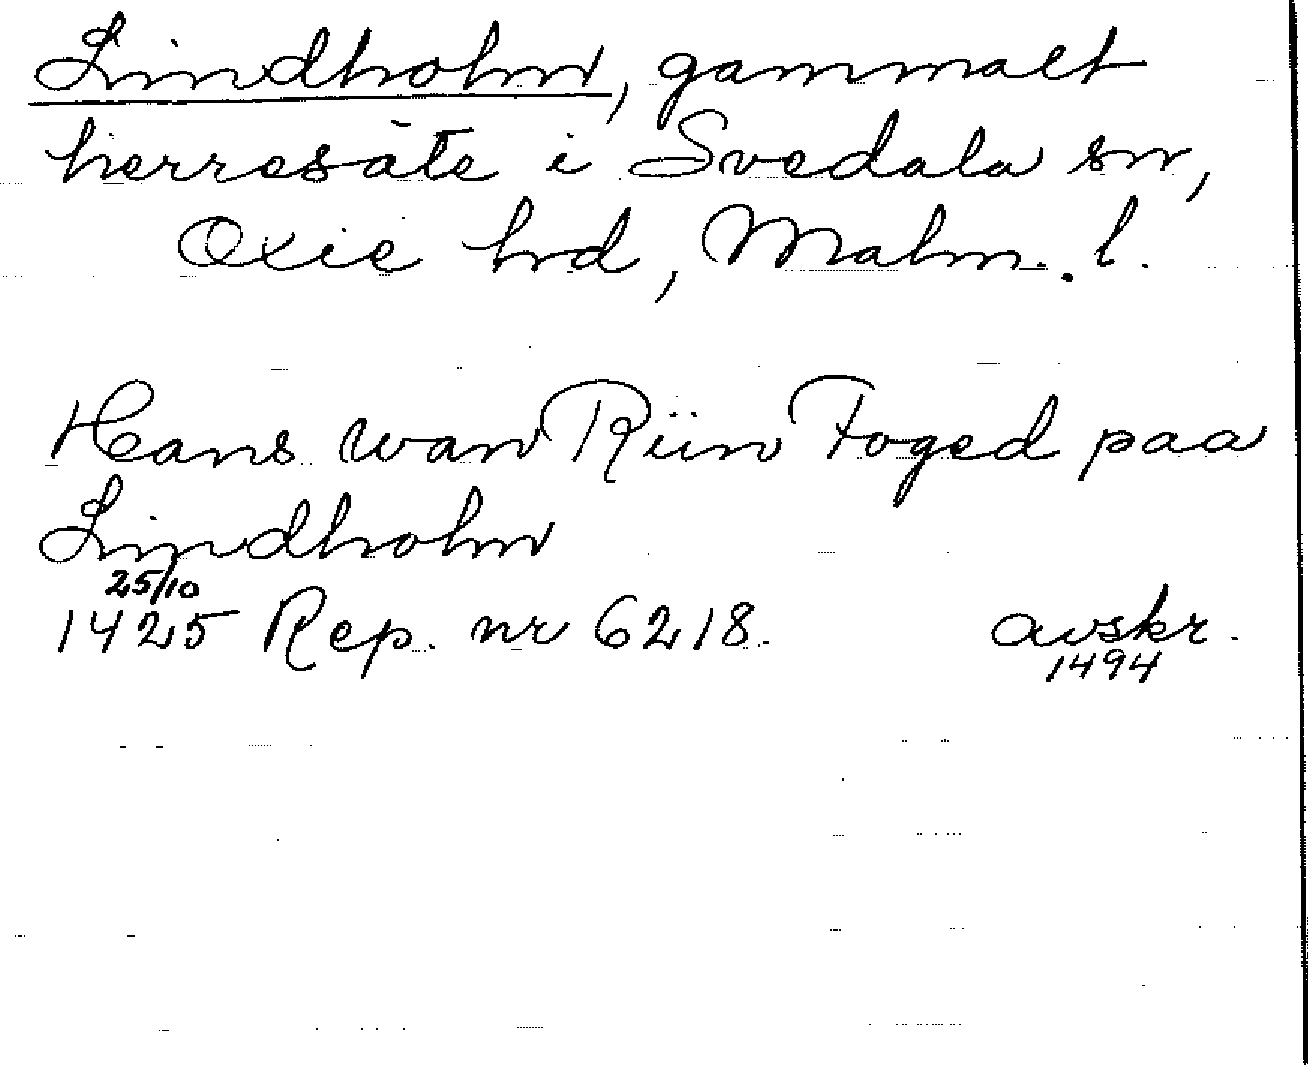 Lindholm, gammalt
herresäte i Svedala sn,
Oxie hrd, Malm. l.
Hans wan Riin Foged paa
Lindholm
25/10
1425 Rep. nr 6218. avskr.
1494